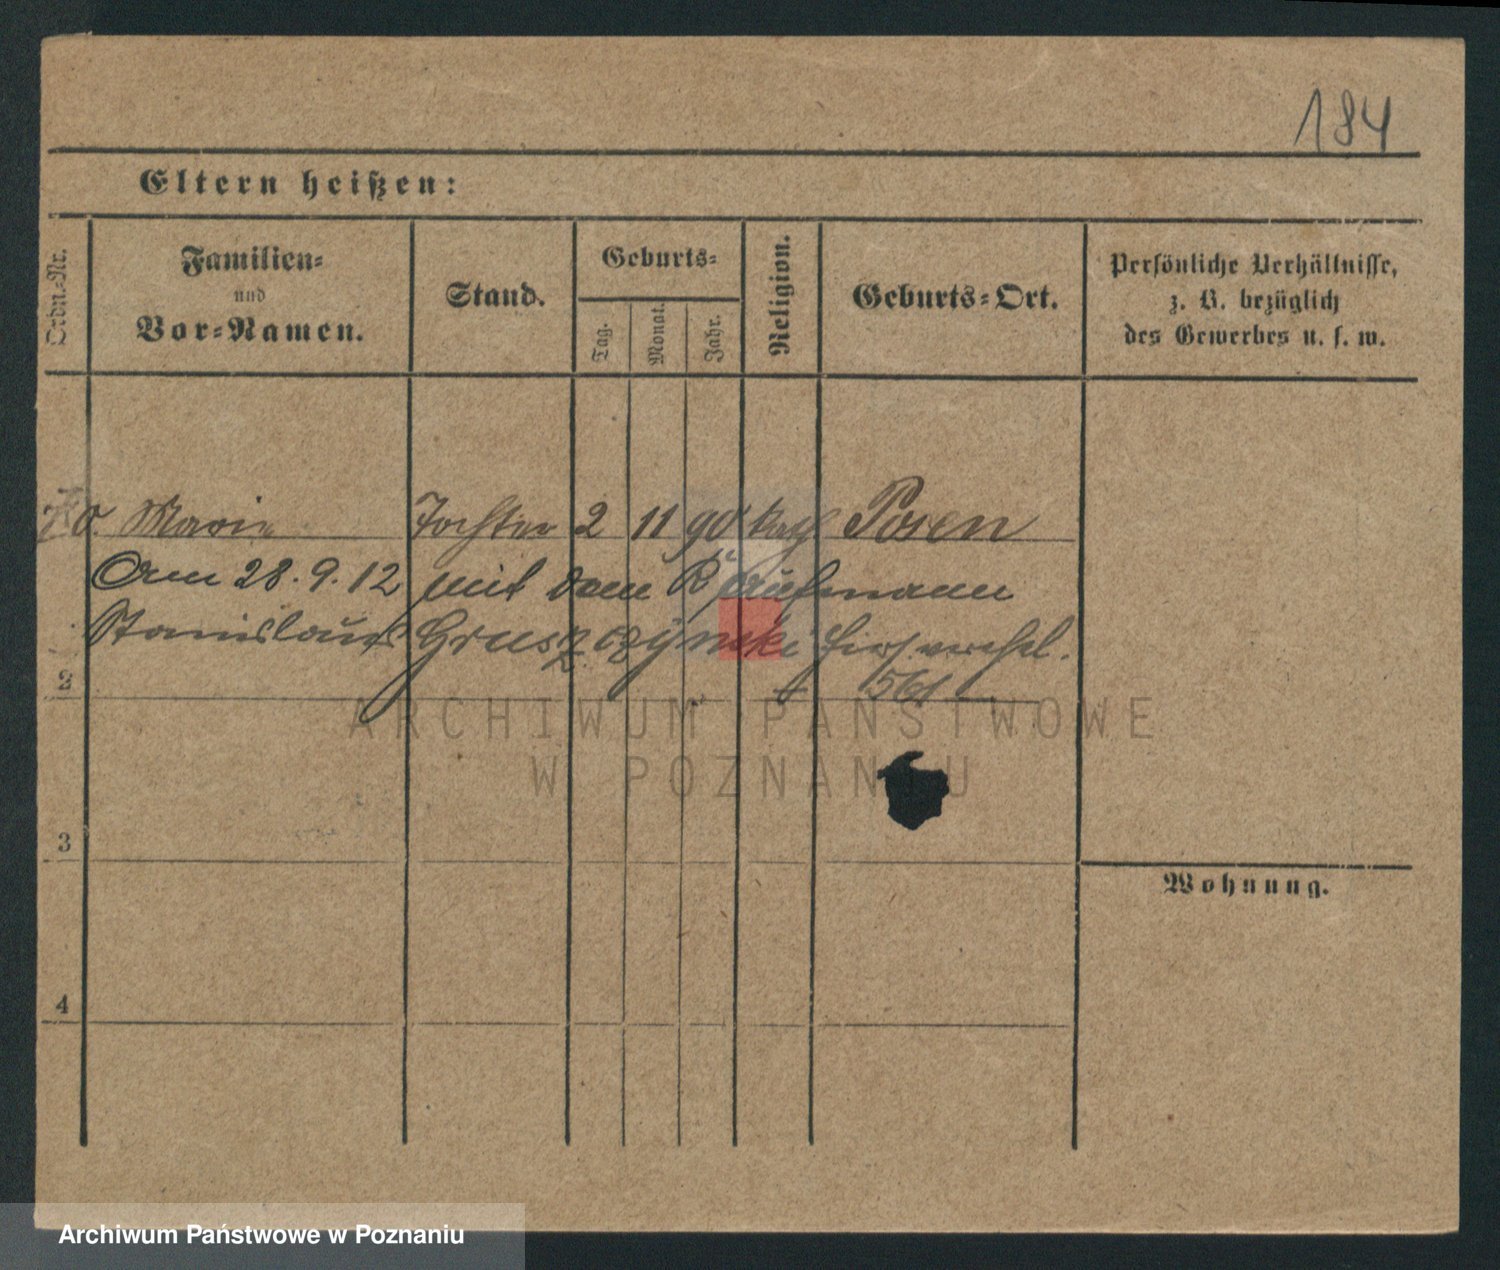 184
Eltern heißen:
Ordn.-Nr.
Familien-
und
Vor-Namen.
Stand.
Geburts-
Tag.
Monat.
Jahr.
Religion.
Geburts-Ort.
Persönliche Verhältnisse,
z. B. bezüglich
des Gewerbes u. s. w.
Marie Tochter 2 11 90 kath Posen
Am 28.9.12 mit dem Kaufmann
Stanislaus Gruszczynski hier verehel.
2
561
ARCHIWUM PAŃSTWOWE
W POZNANIU
3
Wohnung.
4
Archiwum Państwowe w Poznaniu